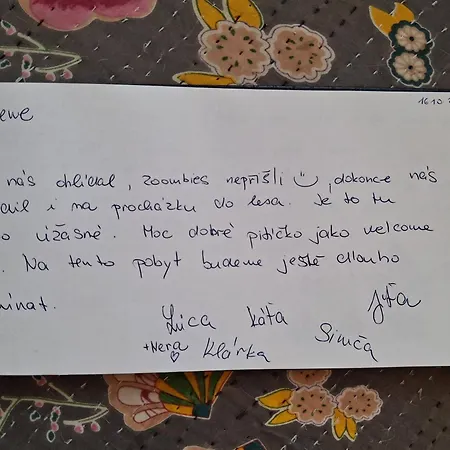 16.10.
ewe
nás ohlídal, zoombies nepřišli ☺, dokonce nás
i na procházku do lesa. Je to tu
o úžasné. Moc dobré pitíčko jako welcome
. Na tento pobyt budeme ještě dlouho
ínat.
Lúca Káťa Jíťa
+Nera Klárka Simča